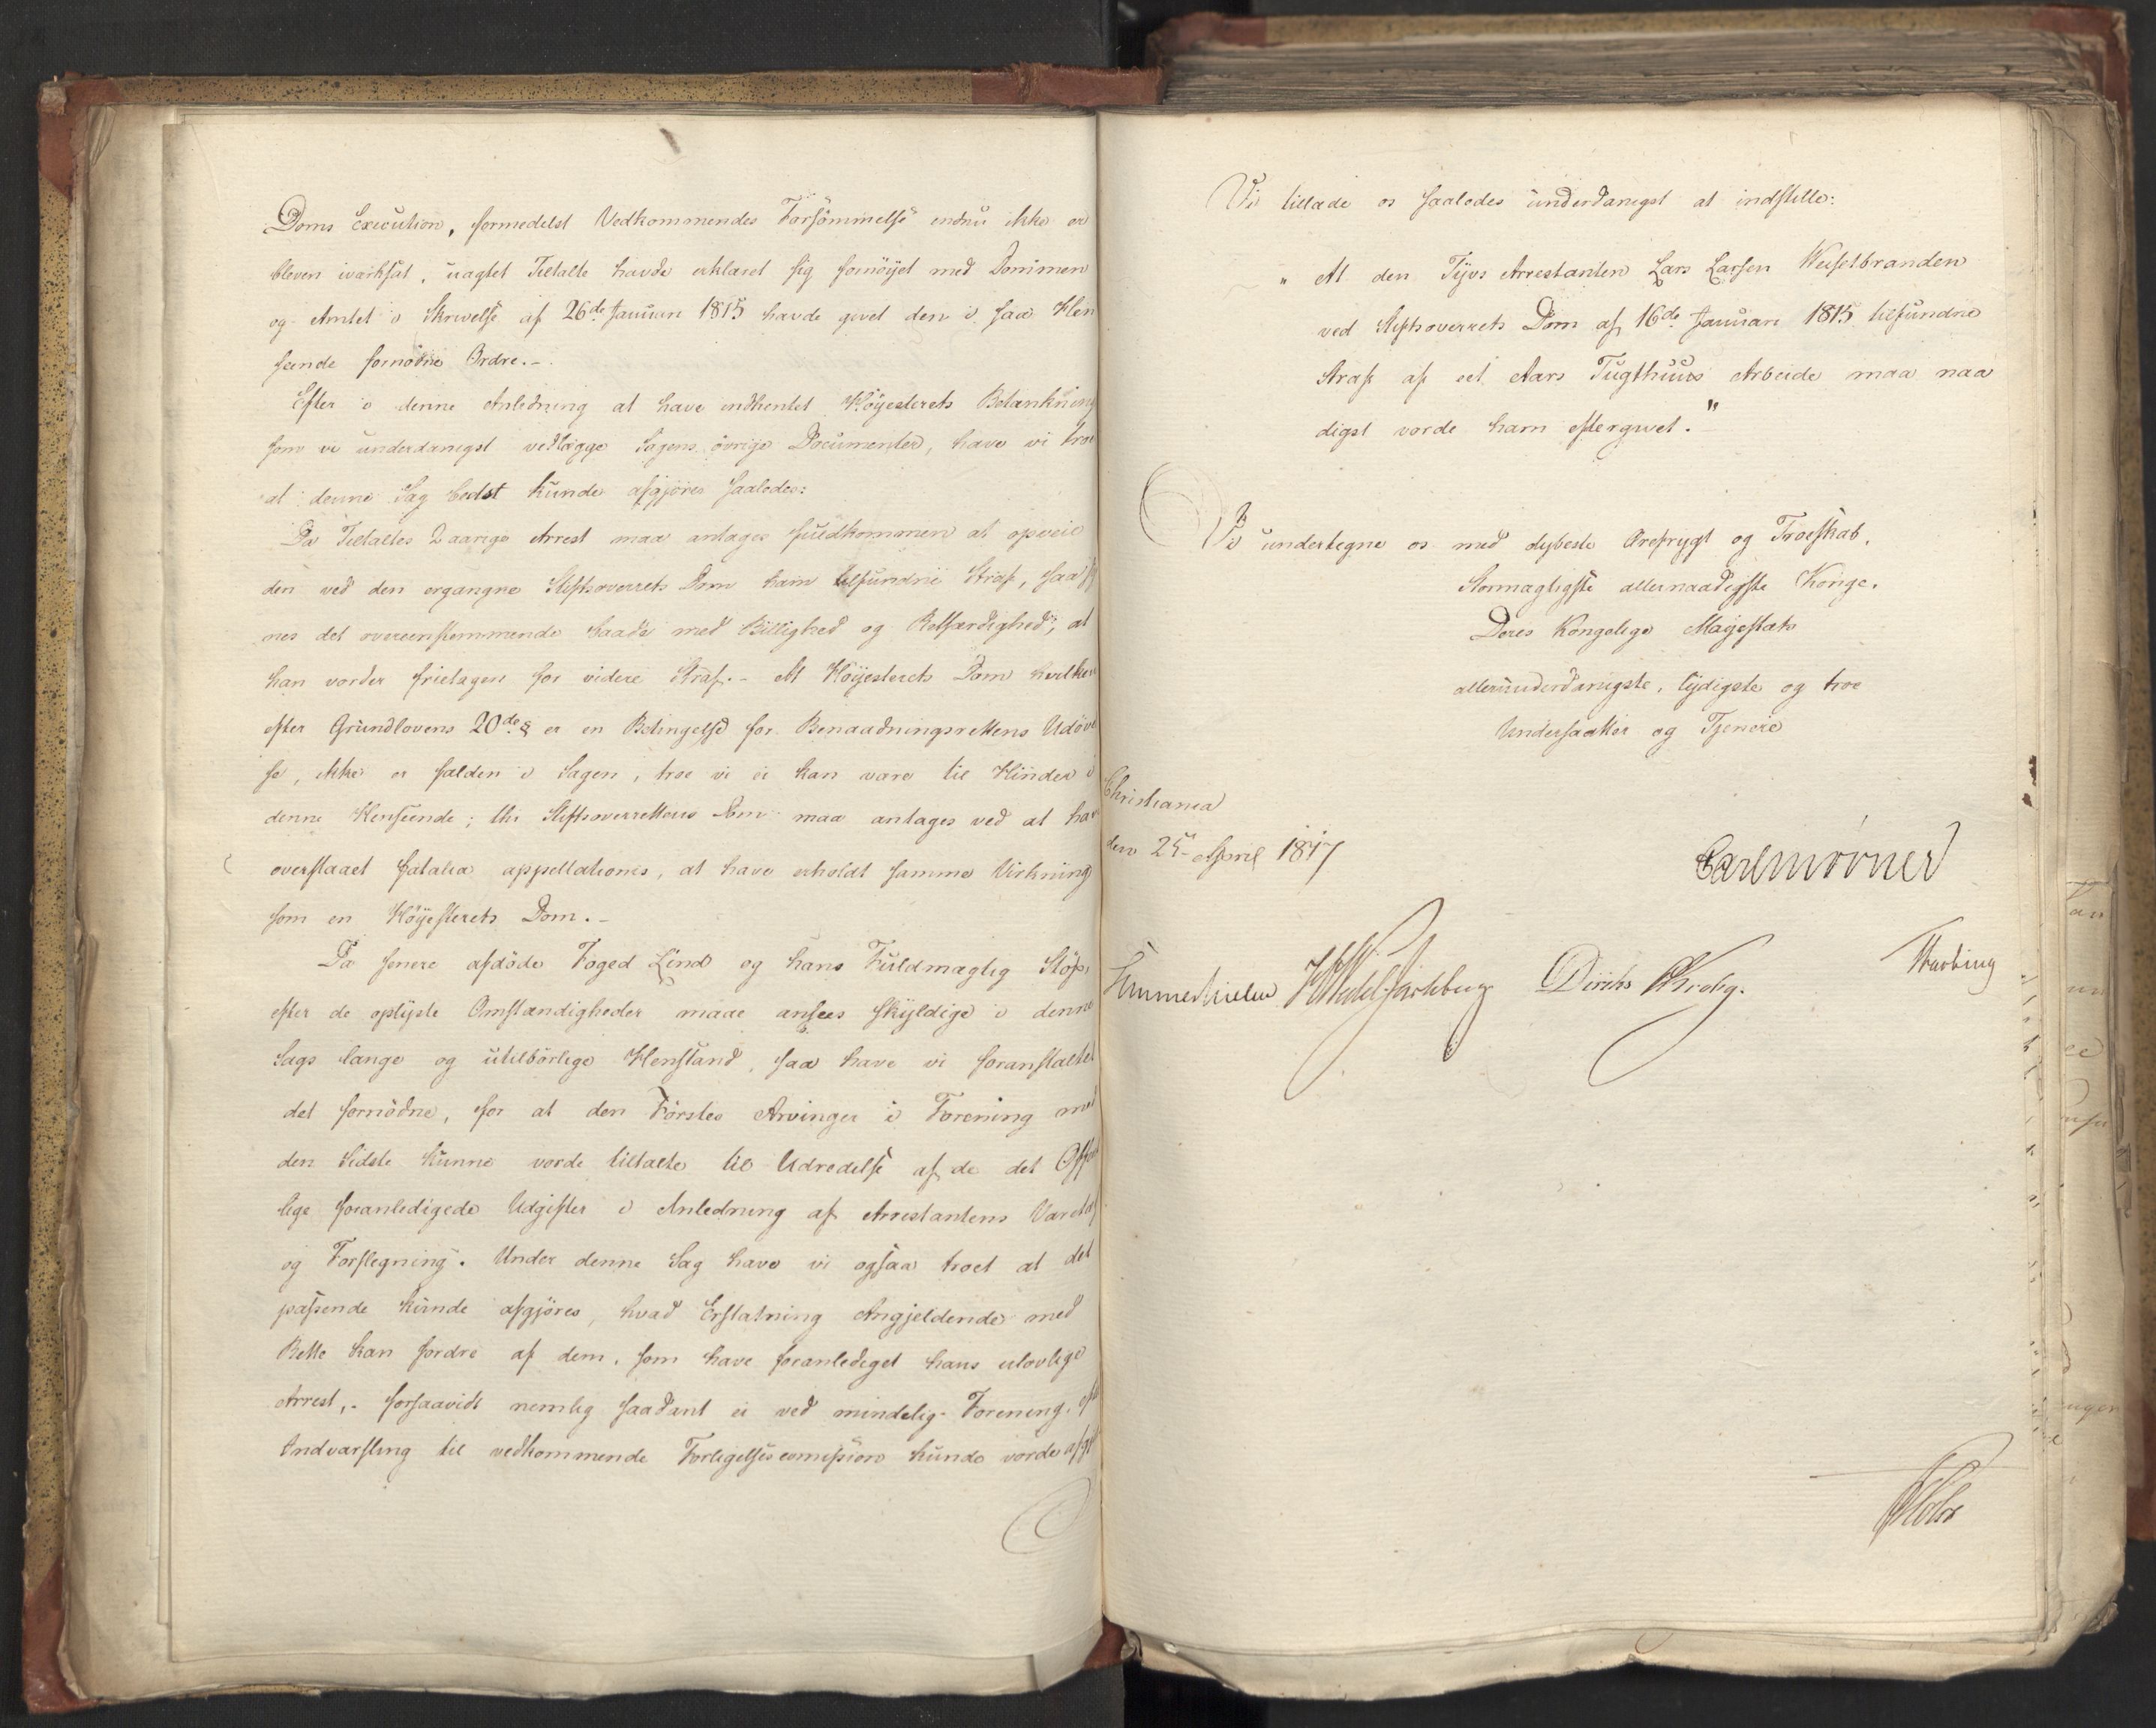 Doms Execution, formedelst Vedkommendes Forsømmelse endnu ikke er
bleven iværksat, uagtet Tiltalte havde erklæret sig fornøyet med Dommen
og Amtet i Skrivelse af 26de Januari 1815 havde givet den i saa Hen
seende fornødne Ordre. -
Efter i denne Anledning at have indhentet Høyesterets Betænkning
som vi underdanigst vedlægge Sagens øvrige Documenter, have vi troet
at denne Sag bedst kunde afgjøres saaledes:
Da Tiltaltes 2 aarige Arrest maa antages fuldkommen at opveie
den ved den ergangne Stiftsoverrets Dom ham tilfundne Straf, saa sy
nes det overeenstemmende baade med Billighed og Retfærdighed, at
han vorder frietagen for videre Straf. - At Høyesterets Dom hvilken
efter Grundlovens 20de § er en Betingelse for Benaadningsrettens Udøvel
se, ikke er falden i Sagen, troe vi ei kan være til Hinder i
denne Henseende; thi Stiftsoverrettens Dom maa antages ved at have
overstaaet fatalia appellationis, at have erholdt samme Virkning
som en Høyesterets Dom. -
Da senere afdøde Foged Lind og hans Fuldmægtig Støp,
efter de oplyste Omstændigheder maae ansees skyldige i denne
Sags lange og utilbørlige Henstand, saa have vi foranstaltet
det fornødne, for at den Førstes Arvinger i Forening med
den Sidste kunne vorde tiltalte til Udredelse af de det Offent
lige foranledigede Udgifter i Anledning af Arrestantens Varetægt
og Forflegning. Under denne Sag have vi ogsaa troet at det
passende kunde afgjøres, hvad Erstatning Angjeldende med
Rette kan fordre af dem, som have foranlediget hans ulovlige
Arrest, - forsaavidt nemlig saadant ei ved mindelig Forening, efter
Indvarsling til vedkommende Forligelsescomission kunde vorde afgjort
Vi tillade os saaledes underdanigst at indstille:
" At den Tyvs Arrestanten Lars Larsen Weisetbranden
ved Stiftsoverrets Dom af 16de Januari 1815 tilfundne
Straf af eet Aars Tugthuus Arbeide maa naa
digst vorde ham eftergivet."
Vi undertegne os med dybeste Ærefrygt og Troeskab,
Stormægtigste allernaadigste Konge.
Deres Kongelige Mayestæts
allerunderdanigste, lydigste og troe
Undersaatter og Tjenere
Christiania
den 25 April 1817
Carl Mörner
Sommerhielm HWedel Jarlsberg Diriks Krohg. Motzfeldt
Holst